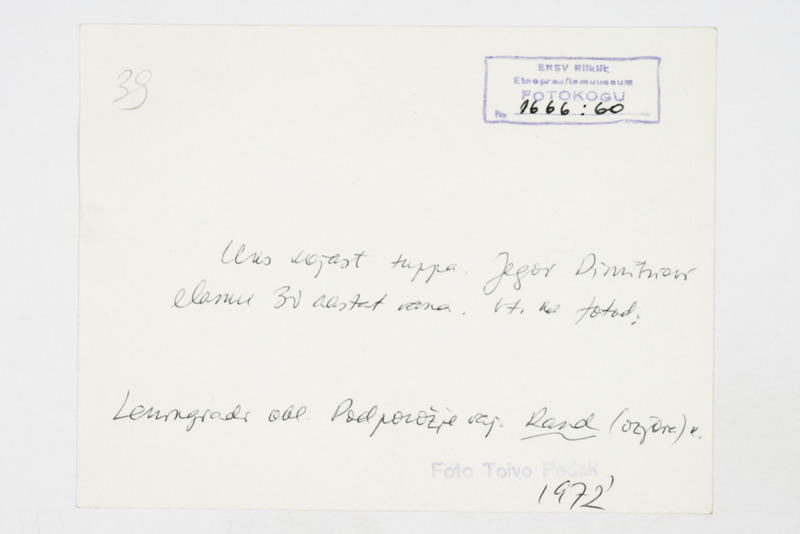 39
ENSV Riiklik
Etnograafiamuuseum
FOTOKOGU
No 1666:60
Uks kojast tuppa. Jegor Dimitrievi
elamu 30 aastat vana. Vt. ka fotod:
Leningradi obl. Podporožje raj. (ozjora) k.
Foto Toivo Pedak
1972